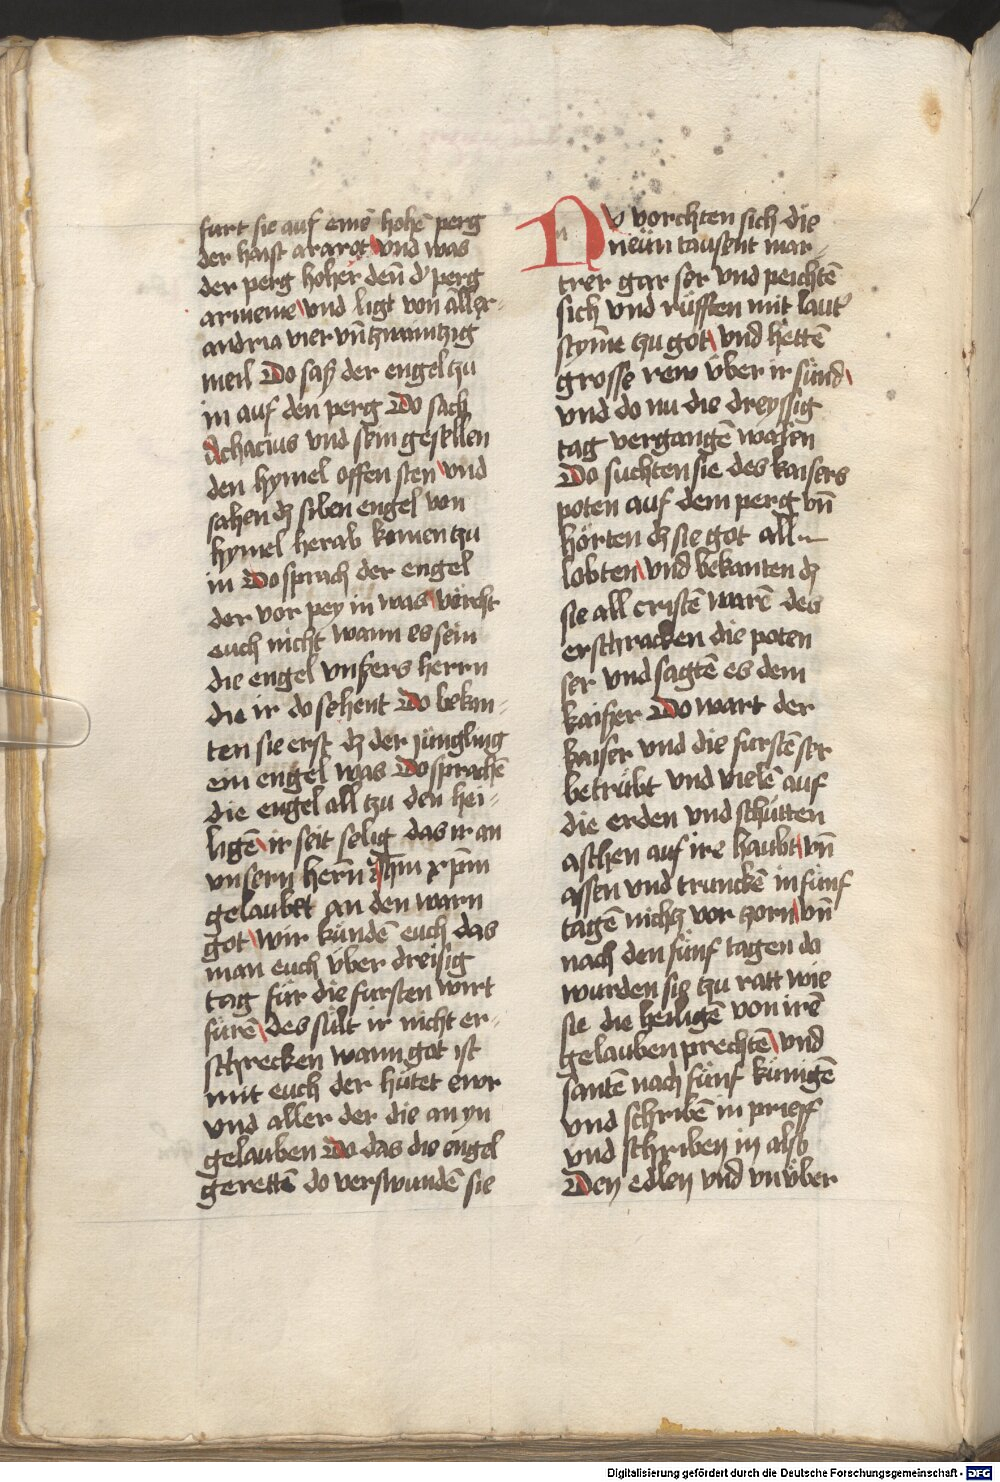 furt sie auf eine͂ hohe͂ perg
der haist ararat vnd was
der perg hoher den͂ d' perg
armenie vnd ligt von aller-
andria vier vn͂ tzwaintzig
meil Do saß der engel tzu
in auf den perg Do sach
Achacius vnd sein gesellen
den hymel offen sten vnd
sahen dz siben engel von
hymel herab komen tzu
in Do sprach der engel
der vor pey in was vörcht
euch nicht wann es sein
die engel vnsers herrn
die ir do sehent Do bekan-
ten sie erst dz der jüngling
ein engel was Do sprache͂
die engel all tzu den hei-
lige͂ ir seit selig das ir an
vnsern herrn͂ Jh͂m xp͂m
gelaubt an den warn
got wir künde͂ euch das
man euch vber dreisig
tag für die fursten wirt
füre͂ des sült ir nicht er-
schrecken wann got ist
mit euch der hütet ewr
vnd aller der die an yn
gelauben Do das die engel
gerette͂ do verswunde͂ sie
Nv vorchten sich die
neün tausent mar-
trer gar ser vnd peichte͂
sich vnd rüfften mit laut'
stym͂e tzu got vnd hette͂
grosse rew vber ir sünd
vnd do nu die dreyssig
tag vergange͂ wasen
Do suchten sie des kaisers
poten auf dem perg vn͂
hörten dz sie got all
lobten vnd bekanten dz
sie all criste͂ ware͂ des
erschracken die poten
ser vnd sagte͂ es dem
kaiser Do wart der
kaiser vnd die furste͂ ser
betrübt vnd viele͂ auf
die erden vnd schütten
aschen auf ire haubt vn͂
assen vnd truncke͂ in fünf
tage͂ nichtz vor zorn vn͂
nach den fünf tagen do
wurden sie tzu ratt wie
sie die heilige͂ von ire͂
gelauben prechte͂ vnd
sante͂ nach fünf künige͂
vnd schribe͂ in prieff
vnd schriben in also
Den edlen vnd vnüber
Digitalisierung gefördert durch die Deutsche Forschungsgemeinschaft - DFG